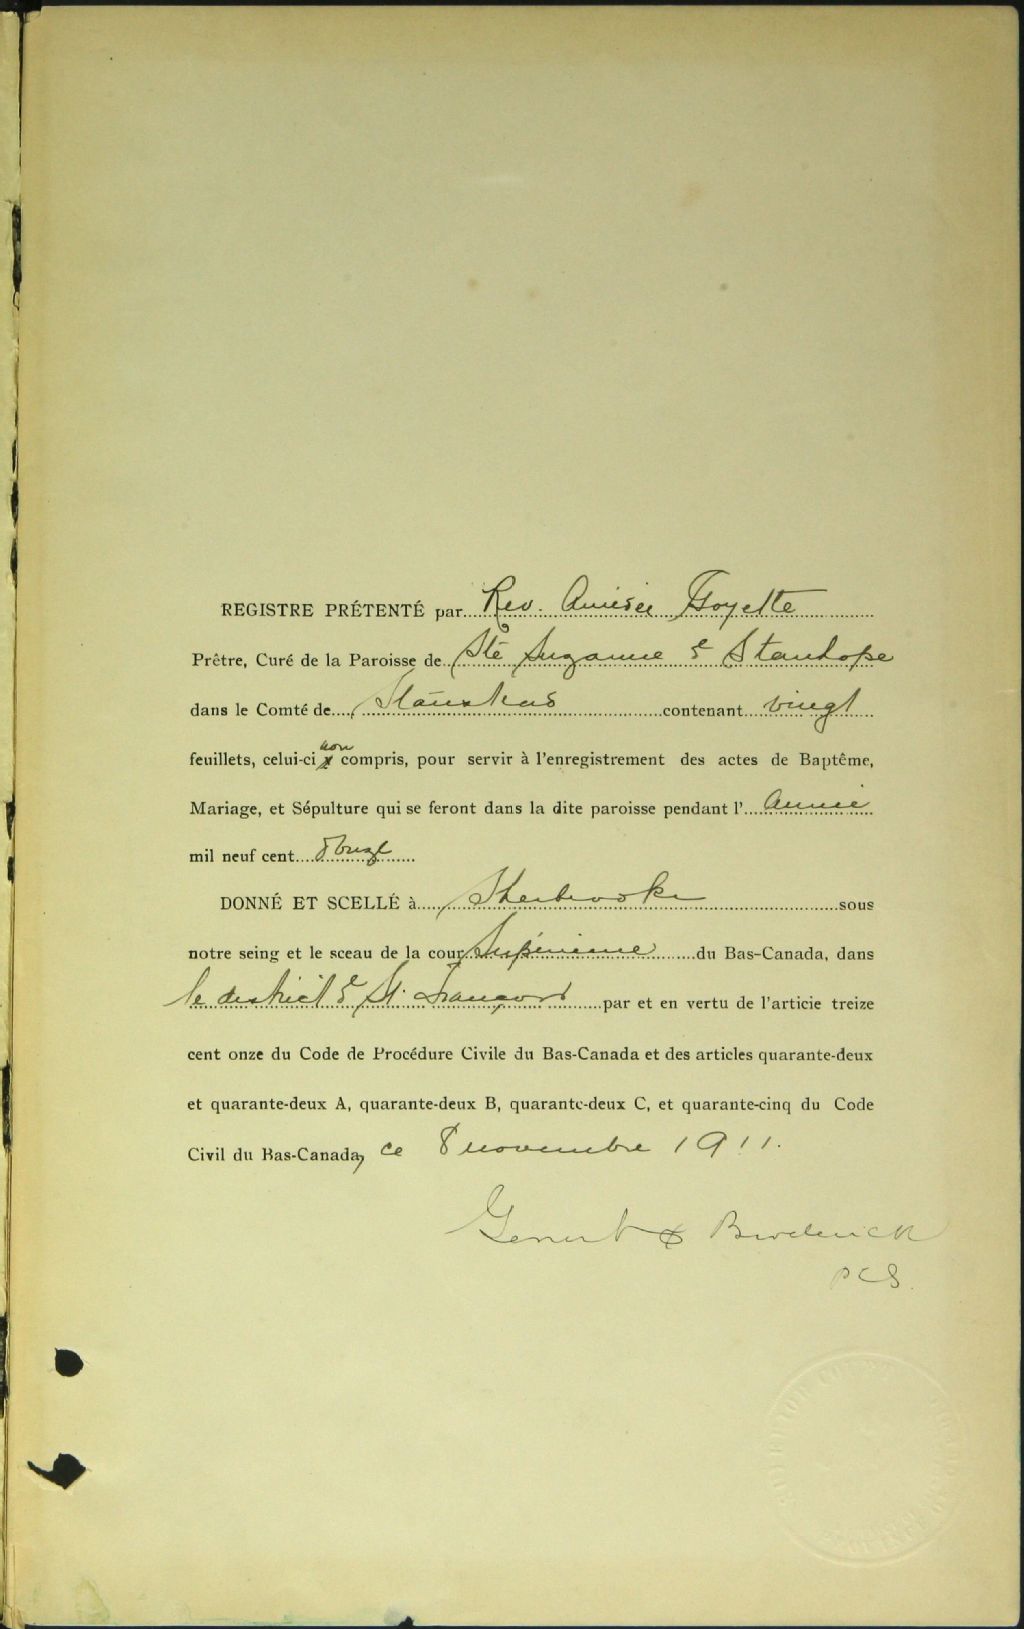 REGISTRE PRÉTENTÉ par Rev. Amédée Goyette
Prêtre, Curé de la Paroisse de Ste Suzanne de Stanhope
dans le Comté de Stanstead contenant vingt
feuillets, celui-ci non compris, pour servir à l'enregistrement des actes de Baptême,
Mariage, et Sépulture qui se feront dans la dite paroisse pendant l' année
mil neuf cent douze
DONNÉ ET SCELLÉ à Sherbrooke sous
notre seing et le sceau de la cour Supérieure du Bas-Canada, dans
le district de St. François par et en vertu de l'articie treize
cent onze du Code de Procédure Civile du Bas-Canada et des articles quarante-deux
et quarante-deux A, quarante-deux B, quarante-deux C, et quarante-cinq du Code
Civil du Bas-Canada, ce 8 novembre 1911.
& Broderick
PCS.
SUPERIOR COURT